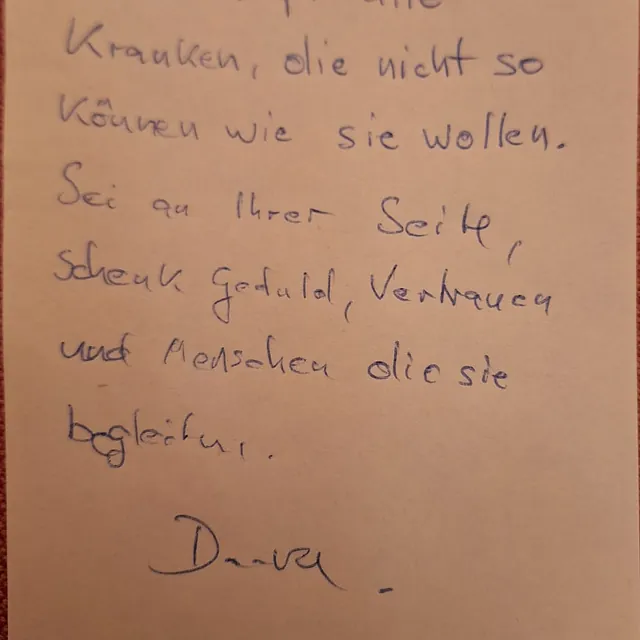 Kranken, die nicht so
können wie sie wollen.
Sei an Ihrer Seite,
schenk Geduld, Vertrauen
und Menschen die sie
begleiten.